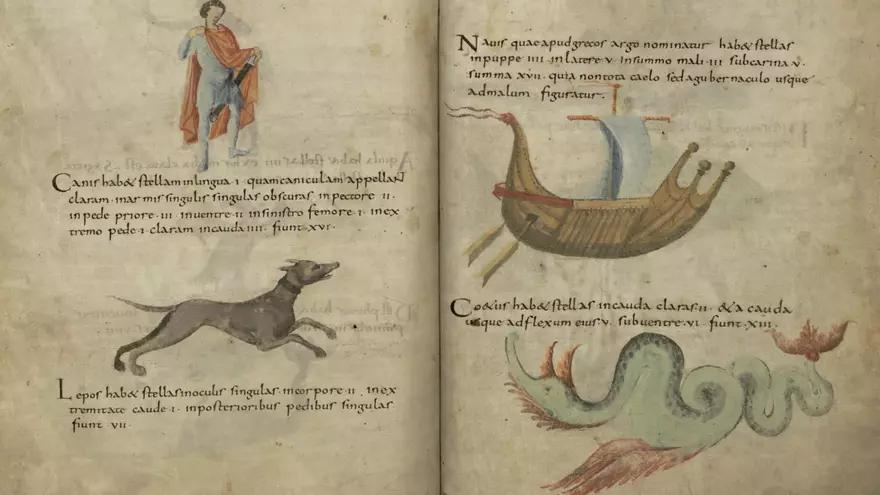 Canis hab& stellam inlingua · I · quam caniculam appellaN
claram · inar mis singulis singulas obscuras · inpectore II ·
in pede priore · III · inuentre · II · insinistro femore · I · inex
tremo pede · I · claram · incauda IIII · fiunt · XVI ·
Lepos hab& stellas inoculis singulas incorpore · II · inex
tremitate caude · I · inposterioribus pedibus singulas
fiunt VII ·
Nauis quae apud grecos argo nominatur hab& stellas
inpuppe IIII · inlatere V · insummo mali · III · subcarina V ·
summa XVII · quia nontota caelo sed aguber naculo usque
admalum figuratur ·
Co&us hab& stellas incauda claras · II · & a cauda
usque adflexum eius V · subuentre · VI · fiunt · XIII ·